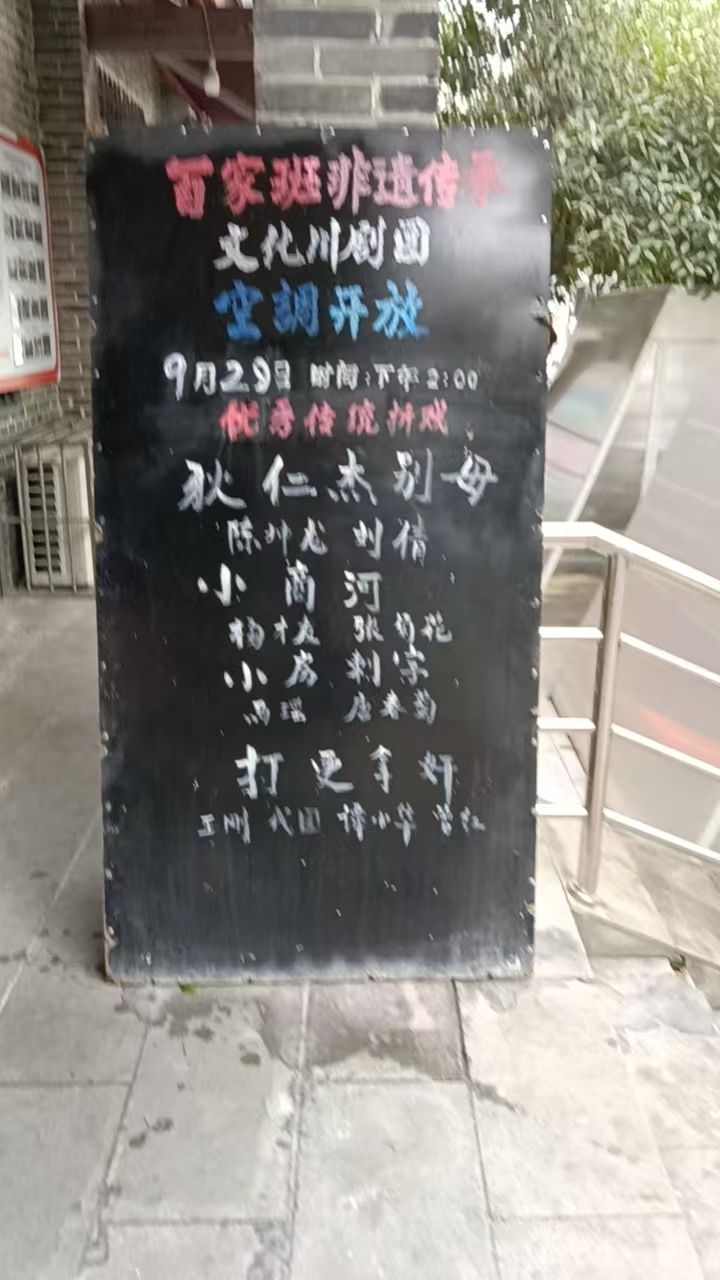 百家班非遗传承
文化川剧团
空調开放
9月29日 时间:下午2:00
优秀传统折戏
狄仁杰别母
陈 龙 刘倩
小商河
杨才友 张菊花
小房刺字
马瑶 唐春菊
打更拿奸
王刚 代国 谭小华 曾红